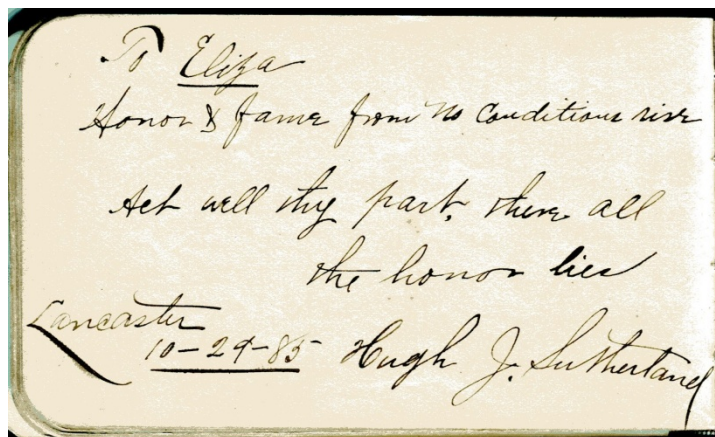 To Eliza
Honor & fame from no Conditions rise
Act well thy part, there all
the honor lies
Lancaster
10-29-85 Hugh J. Sutherland